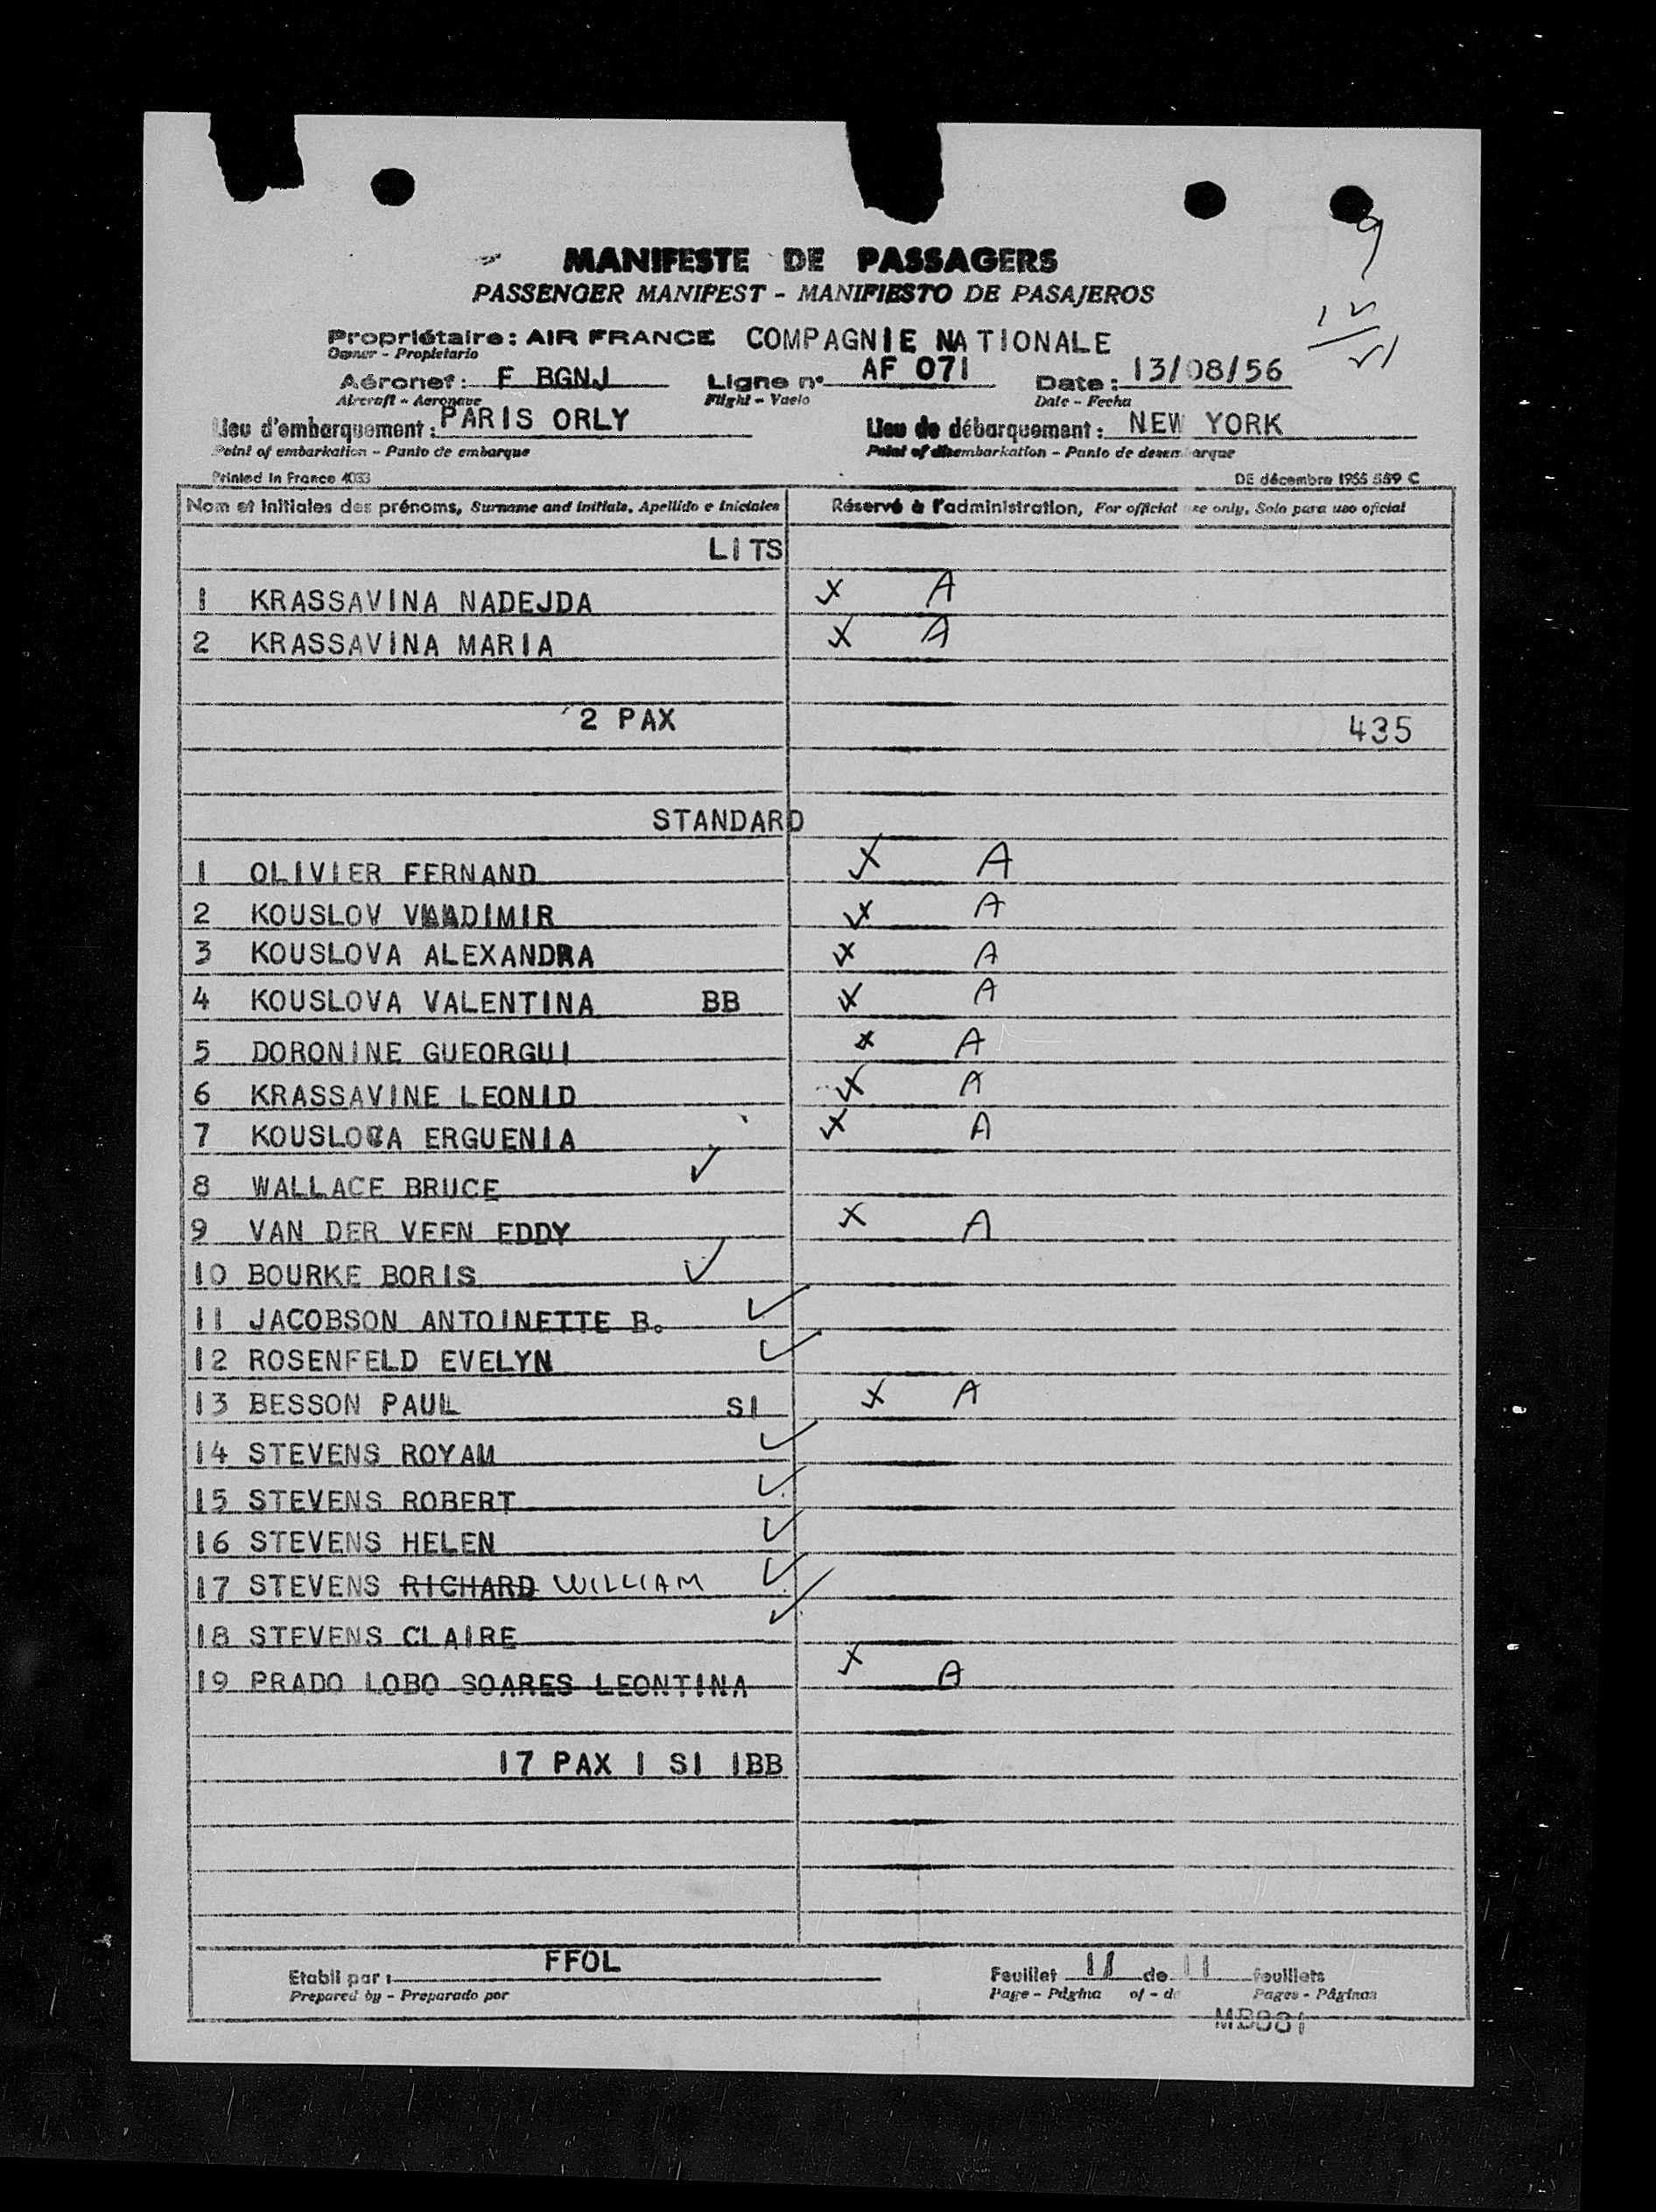 9
12
21
MANIFESTE DE PASSAGERS
PASSENGER MANIFEST - MANIFIESTO DE PASAJEROS
Propriétaire : AIR FRANCE COMPAGNIE NATIONALE
Owner - Propietario
Aéronef : F BGNJ Ligne n° AF 071 Date : 13/08/56
Aircraft - Aeronave Flight - Vuelo Date - Fecha
Lieu d'embarquement : PARIS ORLY Lieu de débarquement : NEW YORK
Point of embarkation - Punto de embarque Point of disembarkation - Punto de desembarque
Printed in France 4033 DE décembre 1955 559 C
Nom et initiales des prénoms, Surname and initials, Apellido e iniciales Réservé à l'administration, For official use only, Solo para uso oficial
LITS
1 KRASSAVINA NADEJDA X A
2 KRASSAVINA MARIA X A
2 PAX 435
STANDARD
1 OLIVIER FERNAND X A
2 KOUSLOV VLADIMIR X A
3 KOUSLOVA ALEXANDRA X A
4 KOUSLOVA VALENTINA BB X A
5 DORONINE GUEORGUI X A
6 KRASSAVINE LEONID X A
7 KOUSLOVA ERGUENIA X A
8 WALLACE BRUCE ✓
9 VAN DER VEEN EDDY X A
10 BOURKE BORIS ✓
11 JACOBSON ANTOINETTE B. ✓
12 ROSENFELD EVELYN ✓
13 BESSON PAUL SI X A
14 STEVENS ROYAM ✓
15 STEVENS ROBERT ✓
16 STEVENS HELEN ✓
17 STEVENS RICHARD WILLIAM ✓
18 STEVENS CLAIRE ✓
19 PRADO LOBO SOARES LEONTINA X A
17 PAX 1 SI 1BB
Etabli par : FFOL Feuillet 11 de 11 feuillets
Prepared by - Preparado por Page - Página of - de Pages - Páginas